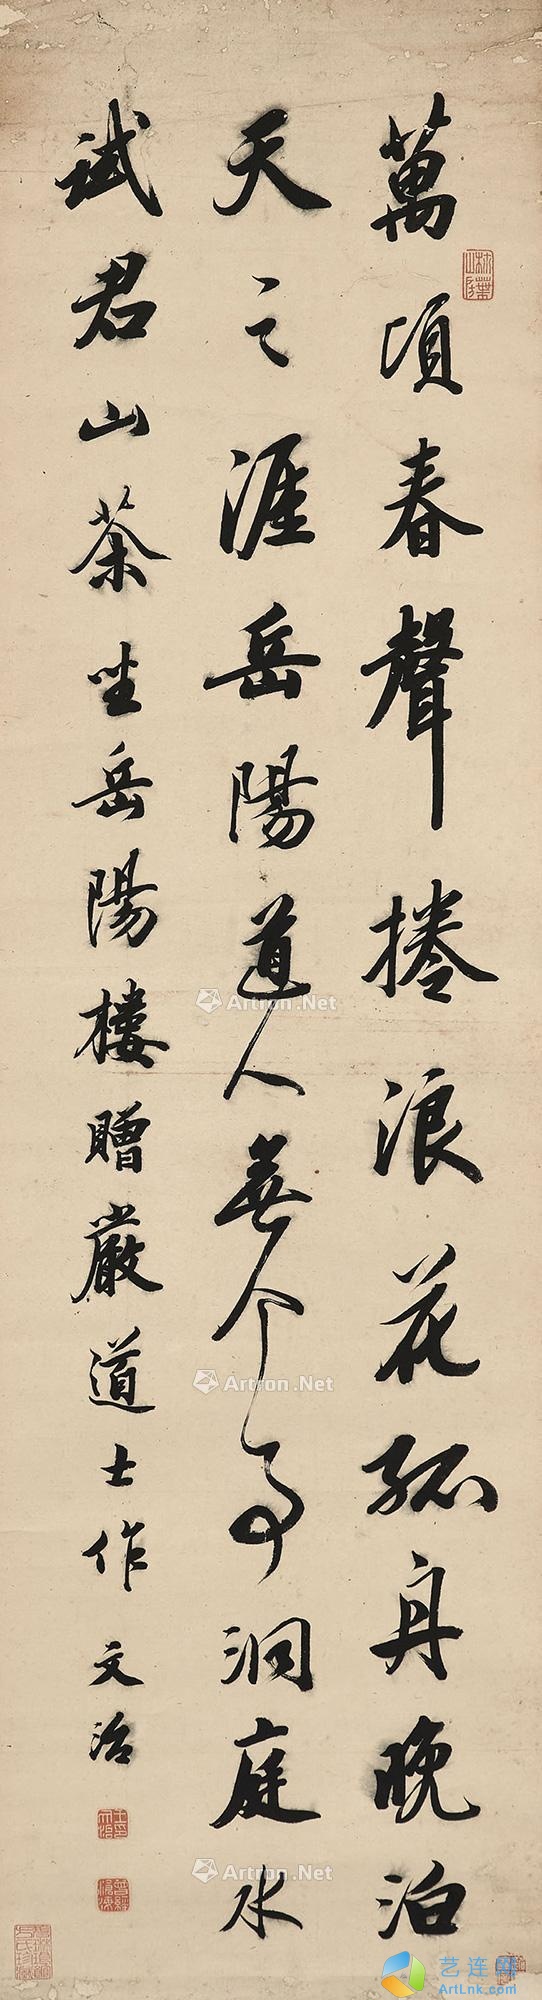 萬頃春聲捲浪花孤舟晚泊
天之涯岳陽道人無个事洞庭水
試君山茶坐岳陽樓贈嚴道士作 文治
Artron.Net
Artron.Net
Artron.Net
艺连网
ArtLnk.com